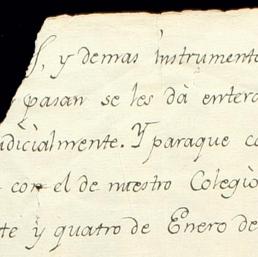 s, y demas instrumento
pasan se les dà entera
udicialmente. Y paraque co
con el de nuestro Colegio
te y quatro de Enero de